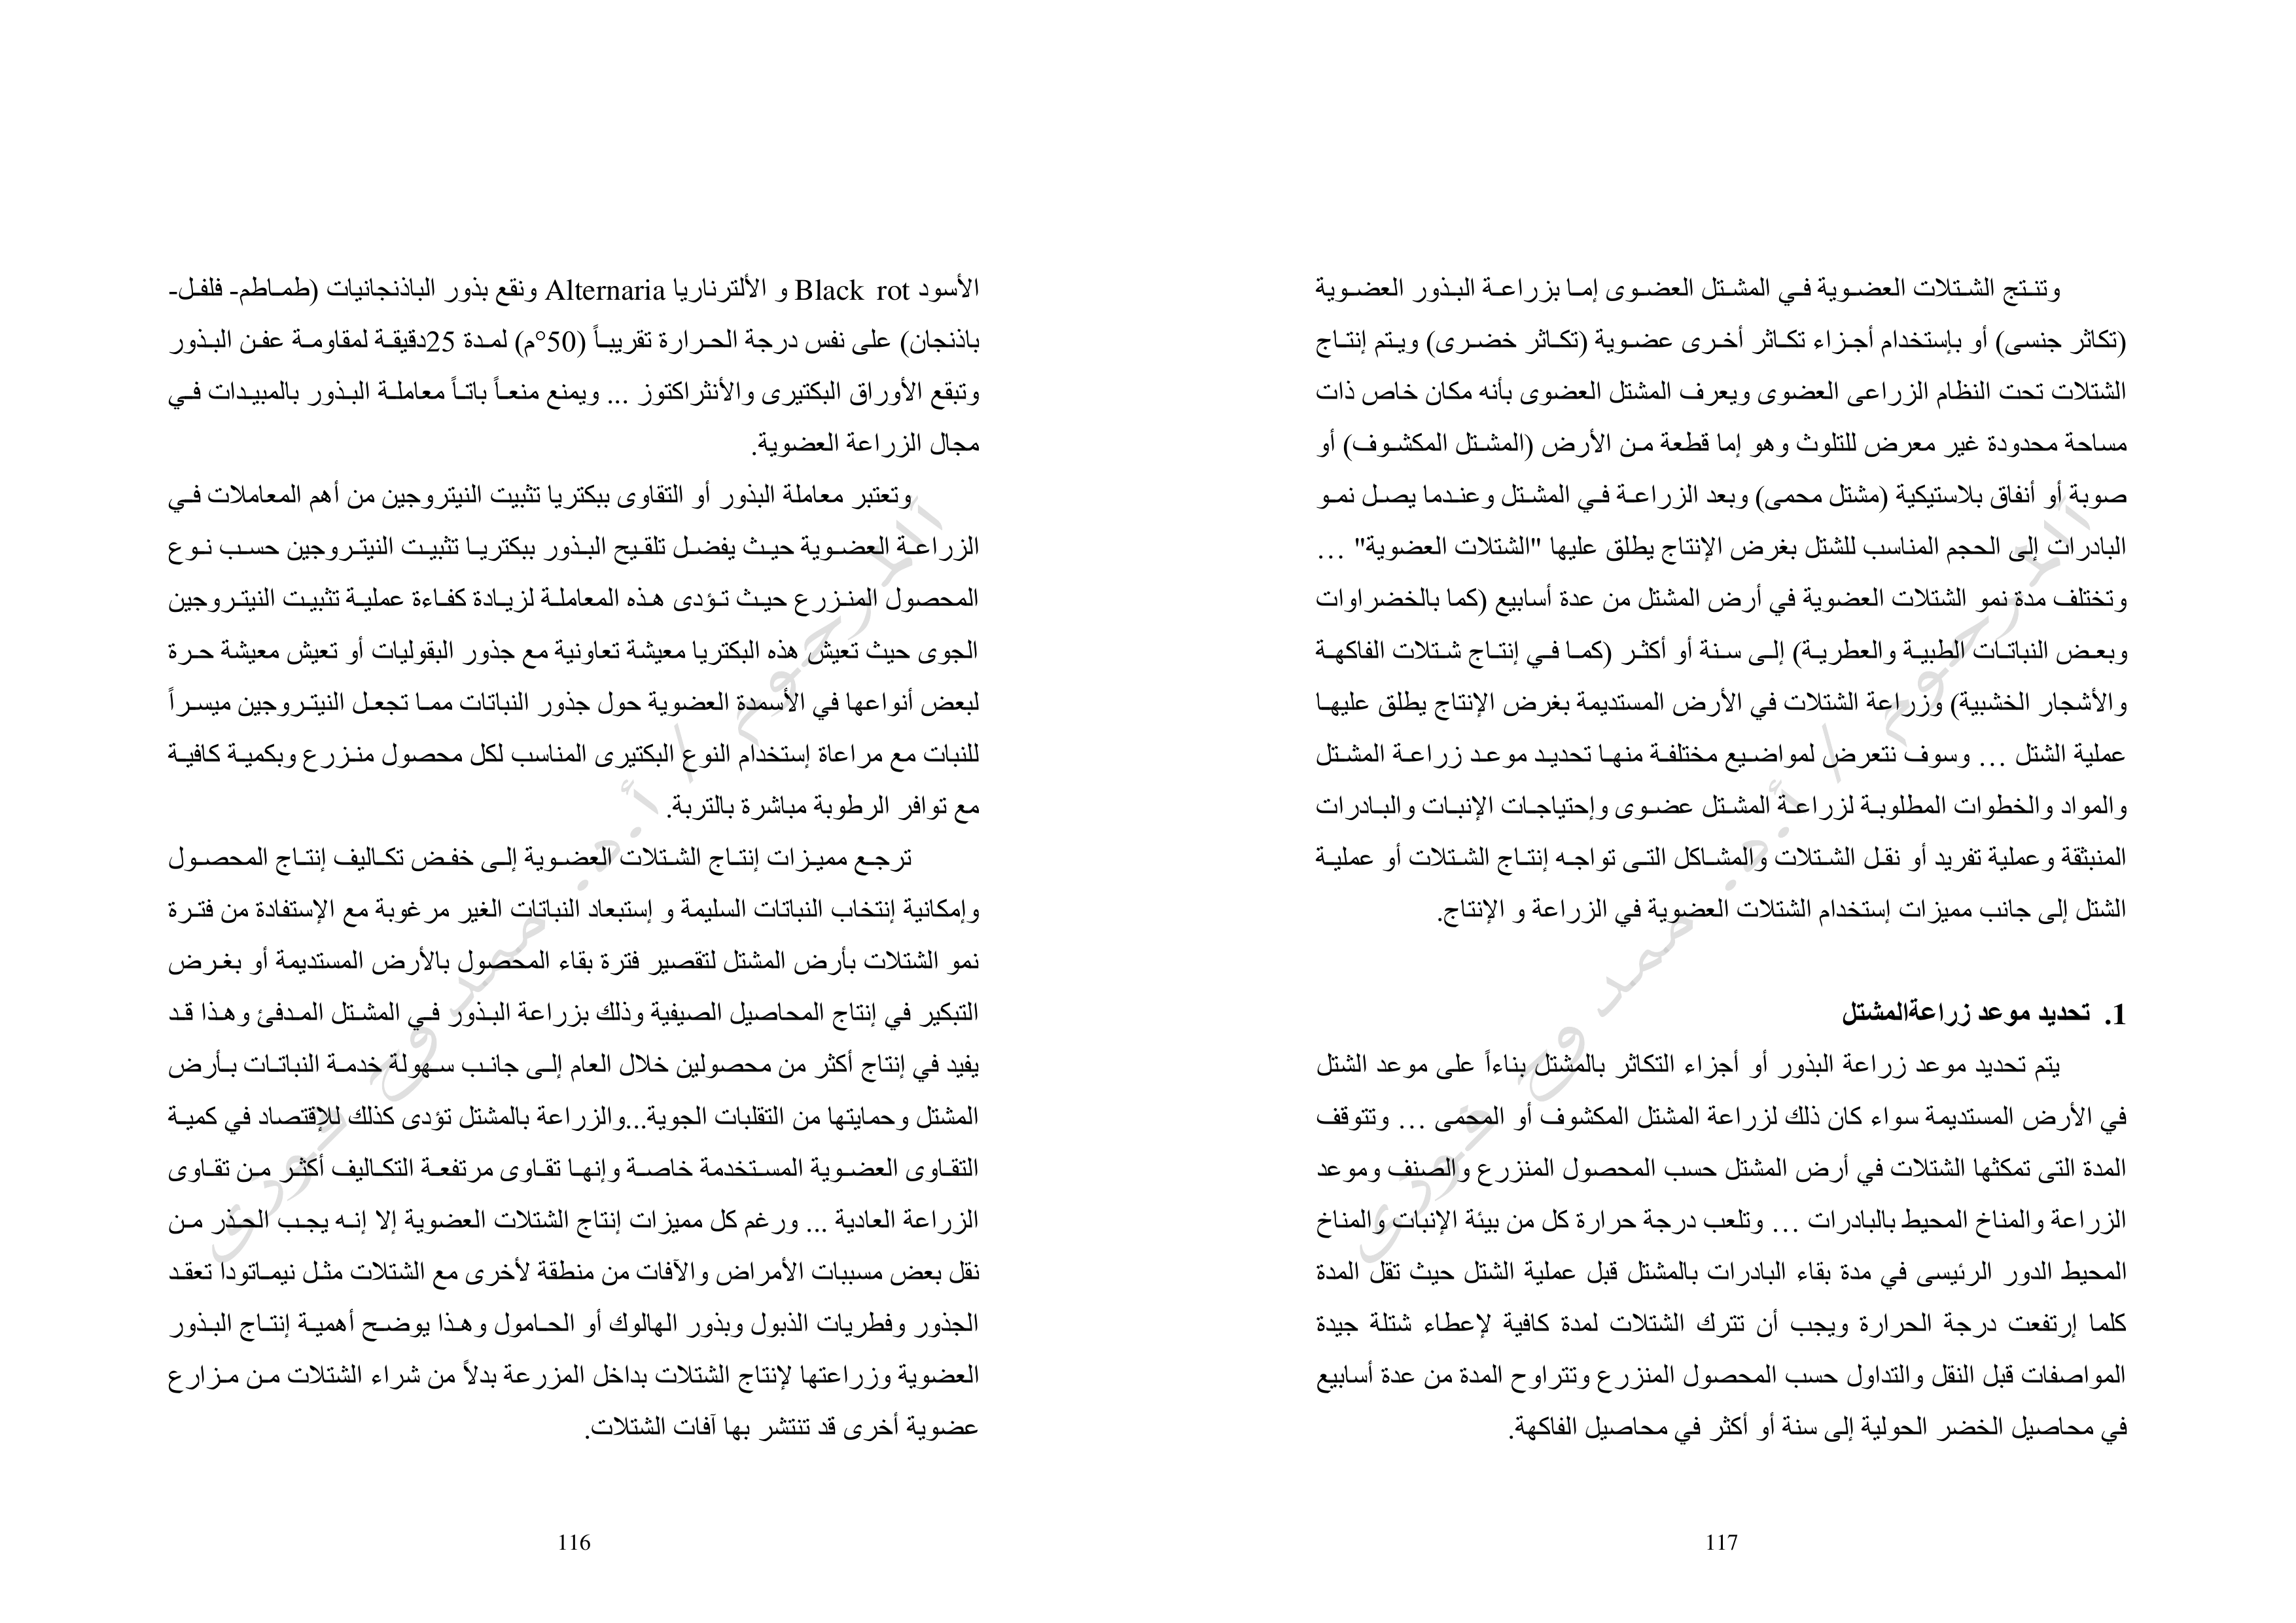 الأسود Black rot و الألترناريا Alternaria ونقع بذور الباذنجانيات (طماطم- فلفل-
باذنجان) على نفس درجة الحرارة تقريباً (50°م) لمدة 25دقيقة لمقاومة عفن البذور
وتبقع الأوراق البكتيرى والأنثراكتوز ... ويمنع منعاً باتاً معاملة البذور بالمبيدات في
مجال الزراعة العضوية.
وتعتبر معاملة البذور أو التقاوى ببكتريا تثبيت النيتروجين من أهم المعاملات في
الزراعة العضوية حيث يفضل تلقيح البذور ببكتريا تثبيت النيتروجين حسب نوع
المحصول المنزرع حيث تؤدى هذه المعاملة لزيادة كفاءة عملية تثبيت النيتروجين
الجوى حيث تعيش هذه البكتريا معيشة تعاونية مع جذور البقوليات أو تعيش معيشة حرة
لبعض أنواعها في الأسمدة العضوية حول جذور النباتات مما تجعل النيتروجين ميسراً
للنبات مع مراعاة إستخدام النوع البكتيرى المناسب لكل محصول منزرع وبكمية كافية
مع توافر الرطوبة مباشرة بالتربة.
ترجع مميزات إنتاج الشتلات العضوية إلى خفض تكاليف إنتاج المحصول
وإمكانية إنتخاب النباتات السليمة و إستبعاد النباتات الغير مرغوبة مع الإستفادة من فترة
نمو الشتلات بأرض المشتل لتقصير فترة بقاء المحصول بالأرض المستديمة أو بغرض
التبكير في إنتاج المحاصيل الصيفية وذلك بزراعة البذور في المشتل المدفئ وهذا قد
يفيد في إنتاج أكثر من محصولين خلال العام إلى جانب سهولة خدمة النباتات بأرض
المشتل وحمايتها من التقلبات الجوية...والزراعة بالمشتل تؤدى كذلك للإقتصاد في كمية
التقاوى العضوية المستخدمة خاصة وإنها تقاوى مرتفعة التكاليف أكثر من تقاوى
الزراعة العادية ... ورغم كل مميزات إنتاج الشتلات العضوية إلا إنه يجب الحذر من
نقل بعض مسببات الأمراض والآفات من منطقة لأخرى مع الشتلات مثل نيماتودا تعقد
الجذور وفطريات الذبول وبذور الهالوك أو الحامول وهذا يوضح أهمية إنتاج البذور
العضوية وزراعتها لإنتاج الشتلات بداخل المزرعة بدلاً من شراء الشتلات من مزارع
عضوية أخرى قد تنتشر بها آفات الشتلات.
116
المرحوم / أ.د. ممدوح فوزى
وتنتج الشتلات العضوية في المشتل العضوى إما بزراعة البذور العضوية
(تكاثر جنسى) أو بإستخدام أجزاء تكاثر أخرى عضوية (تكاثر خضرى) ويتم إنتاج
الشتلات تحت النظام الزراعى العضوى ويعرف المشتل العضوى بأنه مكان خاص ذات
مساحة محدودة غير معرض للتلوث وهو إما قطعة من الأرض (المشتل المكشوف) أو
صوبة أو أنفاق بلاستيكية (مشتل محمى) وبعد الزراعة في المشتل وعندما يصل نمو
البادرات إلى الحجم المناسب للشتل بغرض الإنتاج يطلق عليها "الشتلات العضوية" ...
وتختلف مدة نمو الشتلات العضوية في أرض المشتل من عدة أسابيع (كما بالخضراوات
وبعض النباتات الطبية والعطرية) إلى سنة أو أكثر (كما في إنتاج شتلات الفاكهة
والأشجار الخشبية) وزراعة الشتلات في الأرض المستديمة بغرض الإنتاج يطلق عليها
عملية الشتل ... وسوف نتعرض لمواضيع مختلفة منها تحديد موعد زراعة المشتل
والمواد والخطوات المطلوبة لزراعة المشتل عضوى وإحتياجات الإنبات والبادرات
المنبثقة وعملية تفريد أو نقل الشتلات والمشاكل التى تواجه إنتاج الشتلات أو عملية
الشتل إلى جانب مميزات إستخدام الشتلات العضوية في الزراعة و الإنتاج.
1. تحديد موعد زراعةالمشتل
يتم تحديد موعد زراعة البذور أو أجزاء التكاثر بالمشتل بناءاً على موعد الشتل
في الأرض المستديمة سواء كان ذلك لزراعة المشتل المكشوف أو المحمى ... وتتوقف
المدة التى تمكثها الشتلات في أرض المشتل حسب المحصول المنزرع والصنف وموعد
الزراعة والمناخ المحيط بالبادرات ... وتلعب درجة حرارة كل من بيئة الإنبات والمناخ
المحيط الدور الرئيسى في مدة بقاء البادرات بالمشتل قبل عملية الشتل حيث تقل المدة
كلما إرتفعت درجة الحرارة ويجب أن تترك الشتلات لمدة كافية لإعطاء شتلة جيدة
المواصفات قبل النقل والتداول حسب المحصول المنزرع وتتراوح المدة من عدة أسابيع
في محاصيل الخضر الحولية إلى سنة أو أكثر في محاصيل الفاكهة.
117
المرحوم / أ.د. ممدوح فوزى